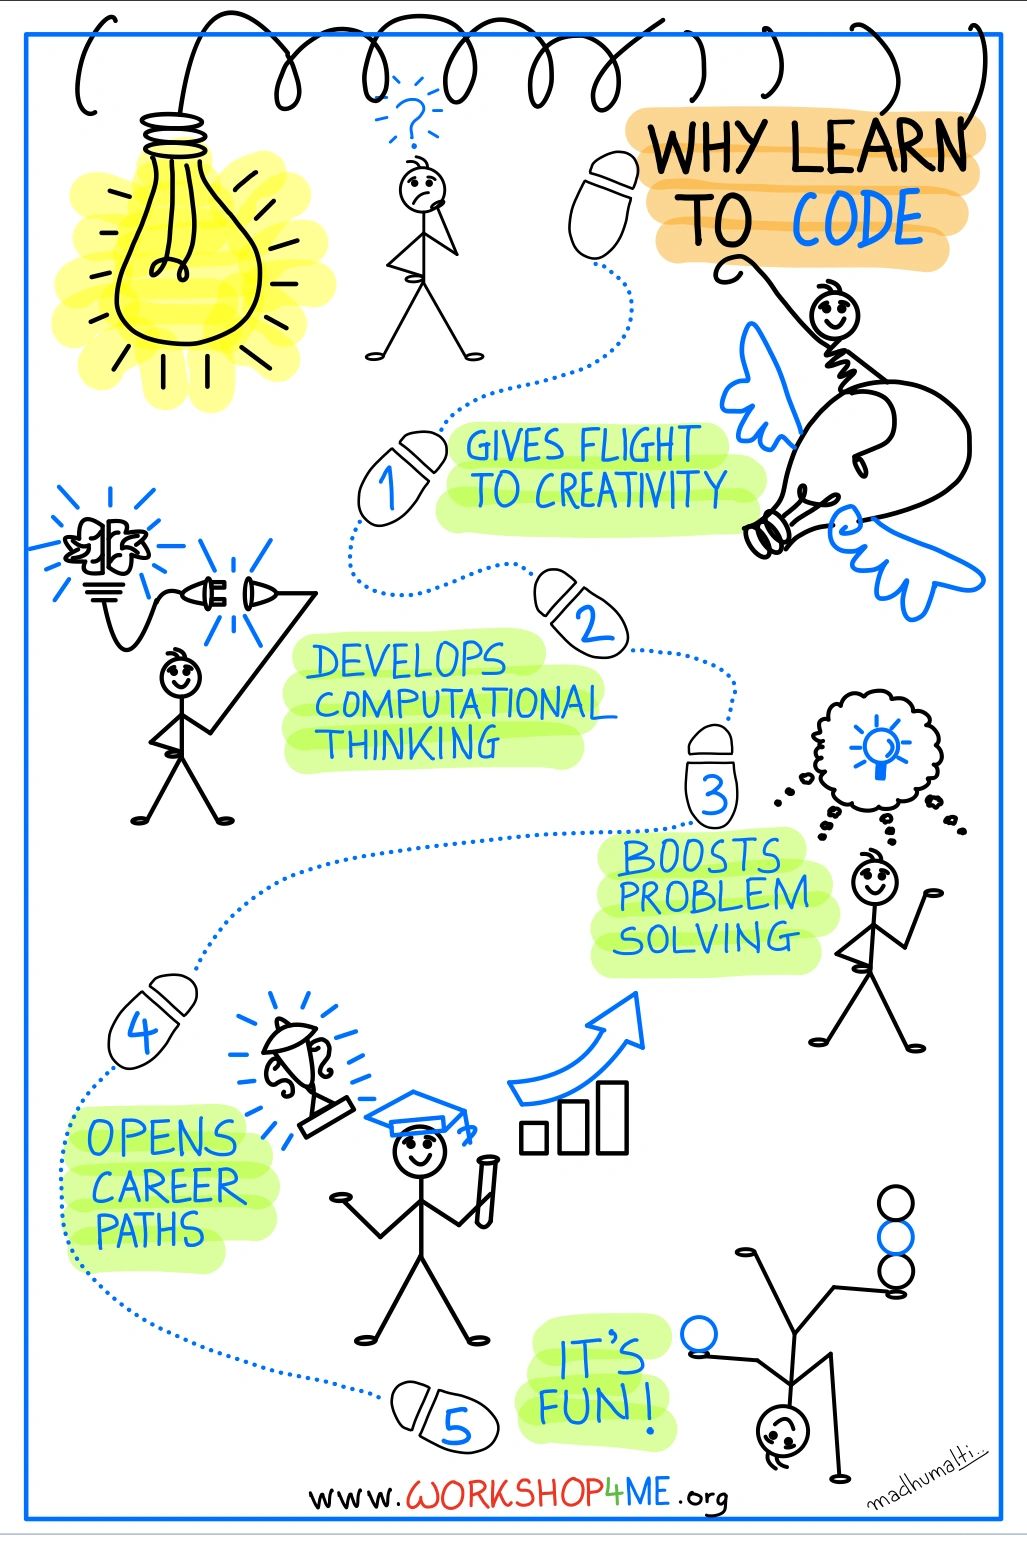 ?
WHY LEARN
TO CODE
1
GIVES FLIGHT
TO CREATIVITY
2
DEVELOPS
COMPUTATIONAL
THINKING
3
BOOSTS
PROBLEM
SOLVING
4
OPENS
CAREER
PATHS
5
IT'S
FUN!
madhumalti...
www.WORKSHOP4ME.org